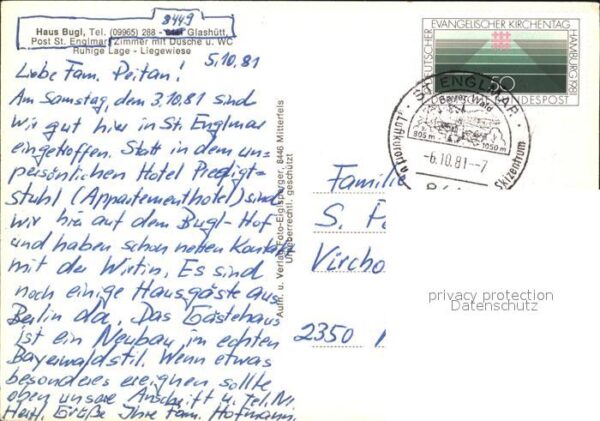 8449
Haus Bugl, Tel. (09965) 288 - Glashütt,
Post St. Englmar, Zimmer mit Dusche u. WC
Ruhige Lage - Liegewiese
5.10.81
Liebe Fam. Peitan!
Am Samstag, den 3.10.81 sind
wir gut hier in St. Englmar
eingetroffen. Statt in dem un-
persönlichen Hotel Predigt-
stuhl (Appartementhotel) sind
wir hier auf dem Bugl-Hof
und haben schon netten Kontakt
mit der Wirtin. Es sind
noch einige Hausgäste aus
Berlin da. Das Gästehaus
ist ein Neubau im echten
Bayerwaldstil. Wenn etwas
besonderes ereignen sollte
oben unsere Anschrift u. Tel. Nr.
Herzl. Grüße Ihre Fam. Hofmann
Aufn. u. Verlag Foto-Eiglsperger, 8446 Mitterfels
Urheberrechtl. geschützt
DEUTSCHER EVANGELISCHER KIRCHENTAG HAMBURG 1981
50
BUNDESPOST
ST. ENGLMAR
Bayer. Wald
805 m 1050 m
-6.10.81-7
Luftkurort
Skizentrum
Familie
S. P
Vircho
2350
privacy protection
Datenschutz